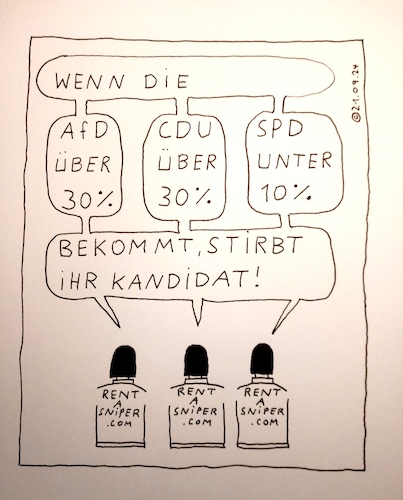 WENN DIE
AfD
ÜBER
30%
CDU
ÜBER
30%
SPD
UNTER
10%
BEKOMMT, STIRBT
IHR KANDIDAT!
RENT
A
SNiPER
.COM
RENT
A
SNiPER
.COM
RENT
A
SNiPER
.COM
©21.09.24